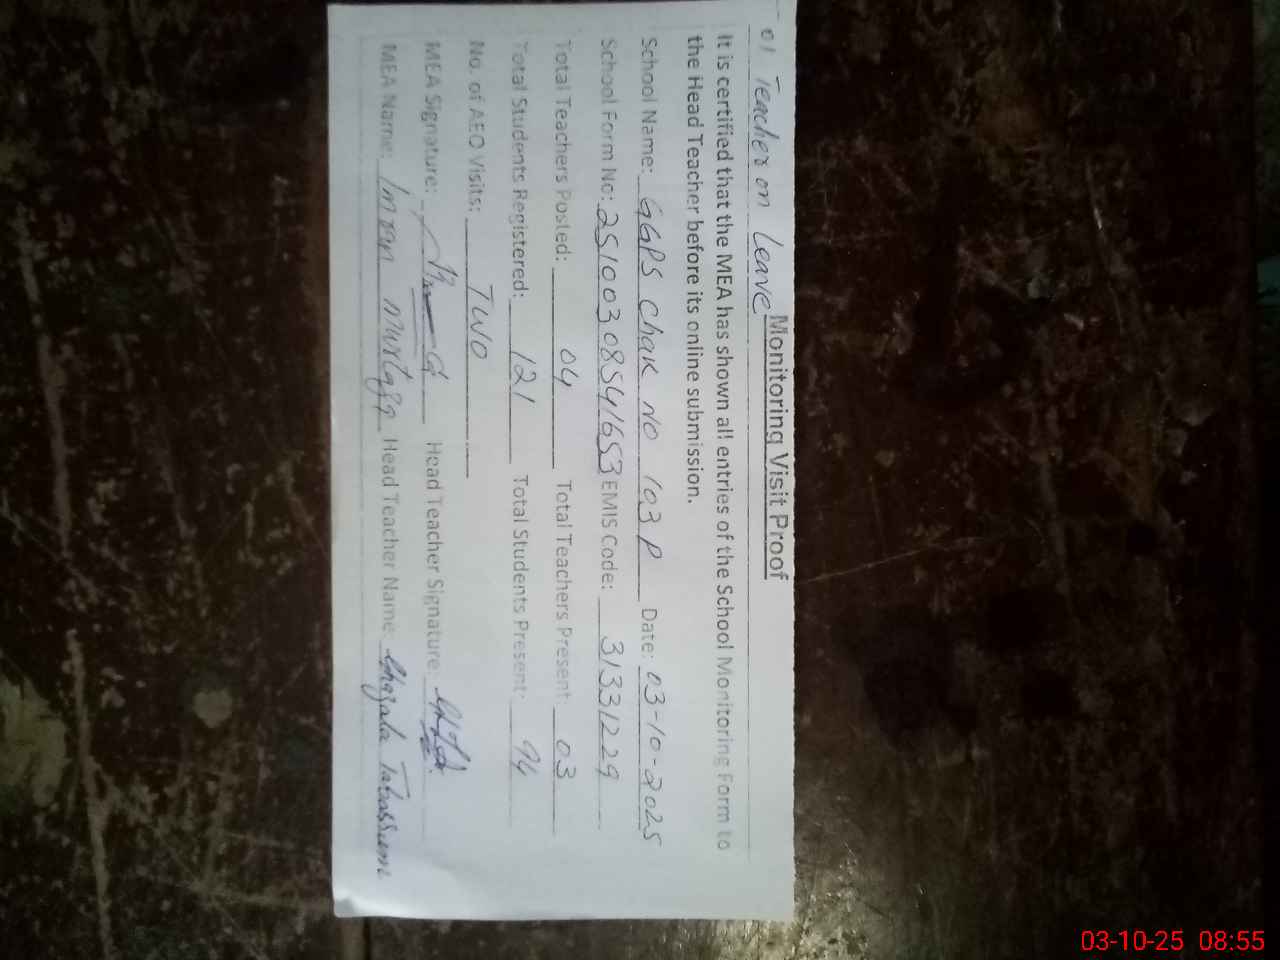 Monitoring Visit Proof
01 Teacher on Leave
It is certified that the MEA has shown all entries of the School Monitoring Form to
the Head Teacher before its online submission.
School Name: GGPS Chak NO 103 P Date: 03-10-2025
School Form No: 25100308541653 EMIS Code: 31331229
Total Teachers Posted: 04 Total Teachers Present: 03
Total Students Registered: 121 Total Students Present: 94
No. of AEO Visits: TWO
MEA Signature: Head Teacher Signature:
MEA Name: Imran Head Teacher Name: Ghazala Tabassum
03-10-25 08:55